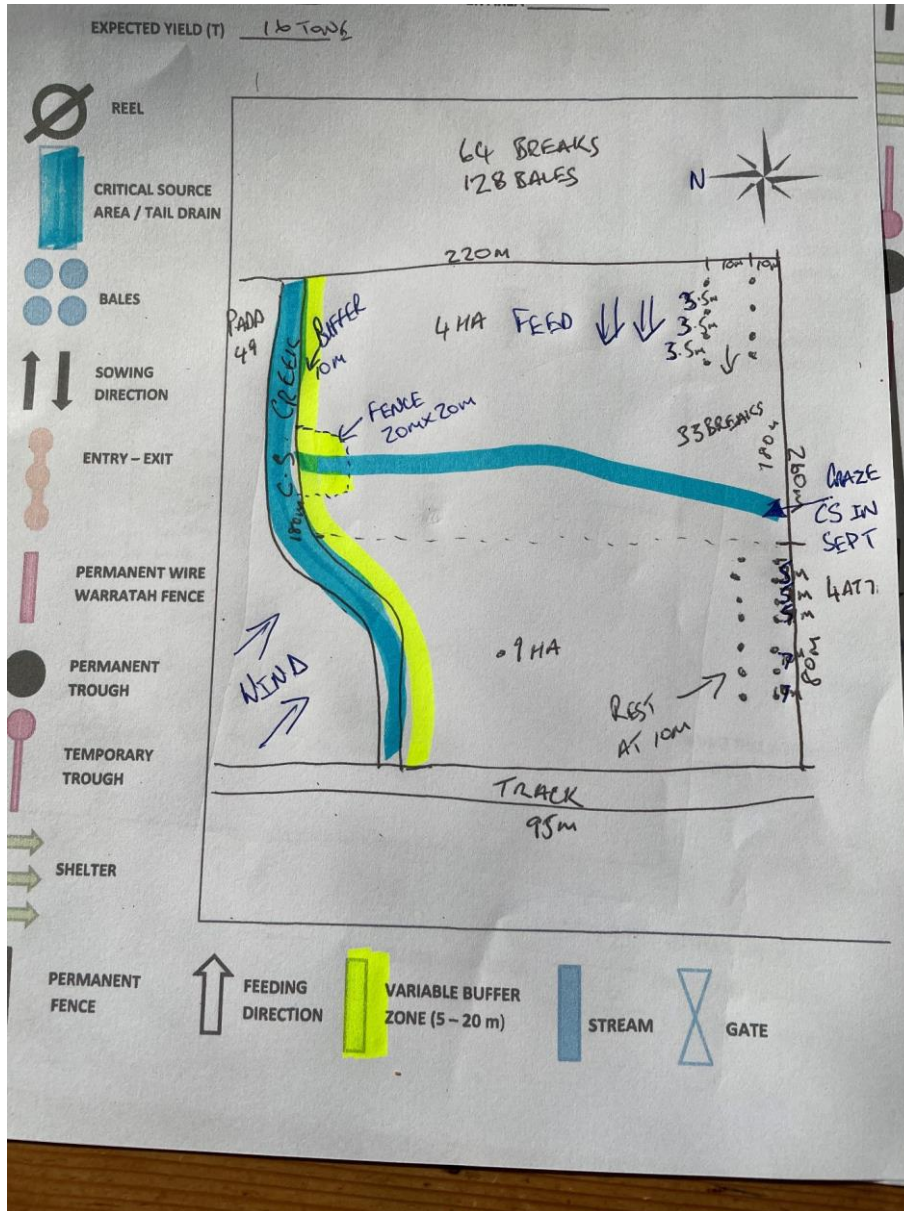 EXPECTED YIELD (T) 16 TONS
REEL
CRITICAL SOURCE
AREA / TAIL DRAIN
BALES
SOWING
DIRECTION
ENTRY – EXIT
PERMANENT WIRE
WARRATAH FENCE
PERMANENT
TROUGH
TEMPORARY
TROUGH
SHELTER
PERMANENT
FENCE
FEEDING
DIRECTION
VARIABLE BUFFER
ZONE (5 – 20 m)
STREAM
GATE
64 BREAKS
128 BALES
N
220M
10m 10m
PADD
49
C.S. CREEK
180m
BUFFER
10m
4 HA FEED
3.5m
3.5m
3.5m
FENCE
20m X 20m
33 BREAKS
180m
260m
GRAZE
CS IN
SEPT
WIND
.9 HA
4 AT 7.
80M
REST
AT 10M
TRACK
95m